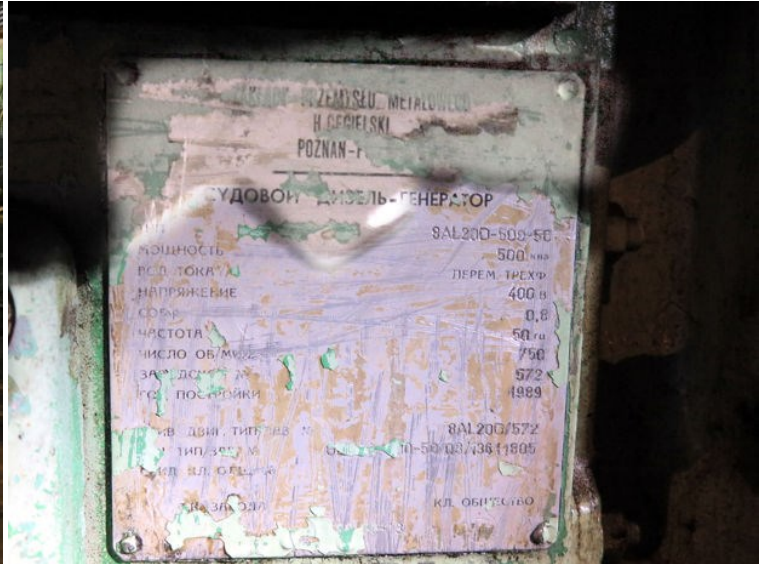 PRZEMYSŁU METALOWEGO
H.CEGIELSKI
POZNAŃ-
СУДОВОЙ ДИЗЕЛЬ-ГЕНЕРАТОР
8AL20D-500-50
МОЩНОСТЬ 500 ква
РОД ТОКА ПЕРЕМ. ТРЕХФ
НАПРЯЖЕНИЕ 400 в
0,8
ЧАСТОТА 50 гц
ЧИСЛО ОБ/МИН 750
ЗАВОДСКОЙ № 572
ГОД ПОСТРОЙКИ 1989
8AL20D/572
ЗАВОДА КЛ. ОБЩЕСТВО